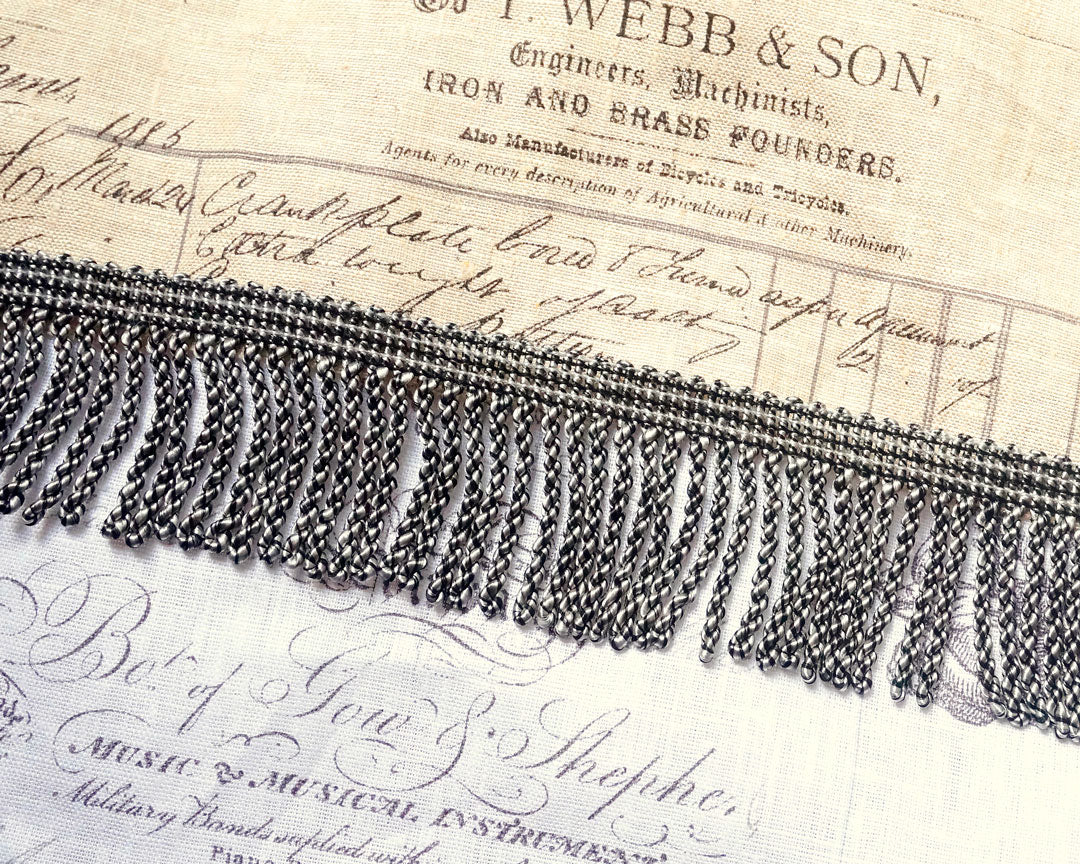 To T. WEBB & SON,
Engineers, Machinists,
IRON AND BRASS FOUNDERS.
Also Manufacturers of Bicycles and Tricycles.
Agents for every description of Agricultural & other Machinery.
1886
For March 24 Crank plate bored & turned as per agreement
Extra weight of
Bot. of Gow & Shephe
MUSIC & MUSICAL INSTRUMENT
Military Bands supplied with
Piano